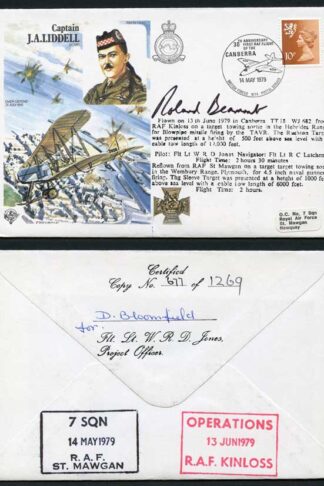 Captain
J.A.LIDDELL
30TH ANNIVERSARY
FIRST FLIGHT
OF THE
CANBERRA
14 MAY 1979
10P
Roland Beamont
Flown on 13th June 1979 in Canberra TT18 WJ682 from
RAF Kinloss on a target towing sortie in the Hebrides Range
for Blowpipe missile firing by the TAVR. The Rushton Target
was presented at a height of 500 feet above sea level with a
cable tow length of feet.
Pilot: Flt Lt W R D Jones Navigator: Flt Lt R C
Flight Time: 2 hours 30 minutes
Reflown from RAF St Mawgan on a target towing sortie in
the Wembury Range, Plymouth, for 4.5 inch naval gunnery
firing. The Sleeve Target was presented at a height of 1000 feet
above sea level with a cable tow length of 6000 feet.
Flight Time: 2 hours.
O.C. No. 7 Sqn
Royal Air Force
St. Mawgan
Newquay
Certified
Copy No. 677 of 1269
D. Bloomfield
for:
Flt. Lt. W. R. D. Jones,
Project Officer.
7 SQN
14 MAY 1979
R. A. F.
ST. MAWGAN
OPERATIONS
13 JUN 1979
R.A.F. KINLOSS